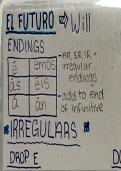 EL FUTURO ⇨ Will
ENDINGS
é emos
ás éis
á án
- AR, ER, IR +
irregular
endings
- add to end
of infinitive
IRREGULARS
DROP E